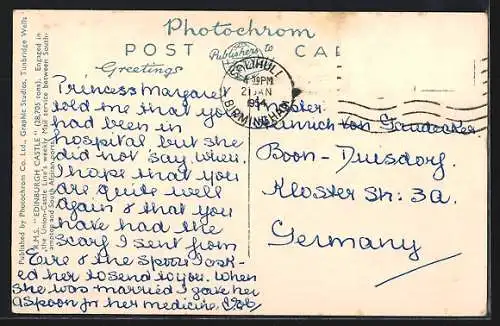 Photochrom
POST CA
Publishers to
Greetings
SOLIHULL
4 30PM
21 JAN
1954
BIRMINGHAM
Published by Photochrom Co. Ltd., Graphic Studios, Tunbridge Wells
R.M.S. "EDINBURGH CASTLE" (28,705 tons). Engaged in
the Union-Castle Line's weekly Mail service between South-
ampton and South African ports.
Princess Margaret
told me that you
had been in
hospital but she
did not say when.
I hope that you
are quite well
again & that you
have had the
scarf I sent from
Eire & the spoon I ask-
ed her to send to you. When
she was married I gave her
a spoon for her medicine.
Heinrich von Gaudecker
Bonn-Duisdorf.
Kloster Str: 3a.
Germany